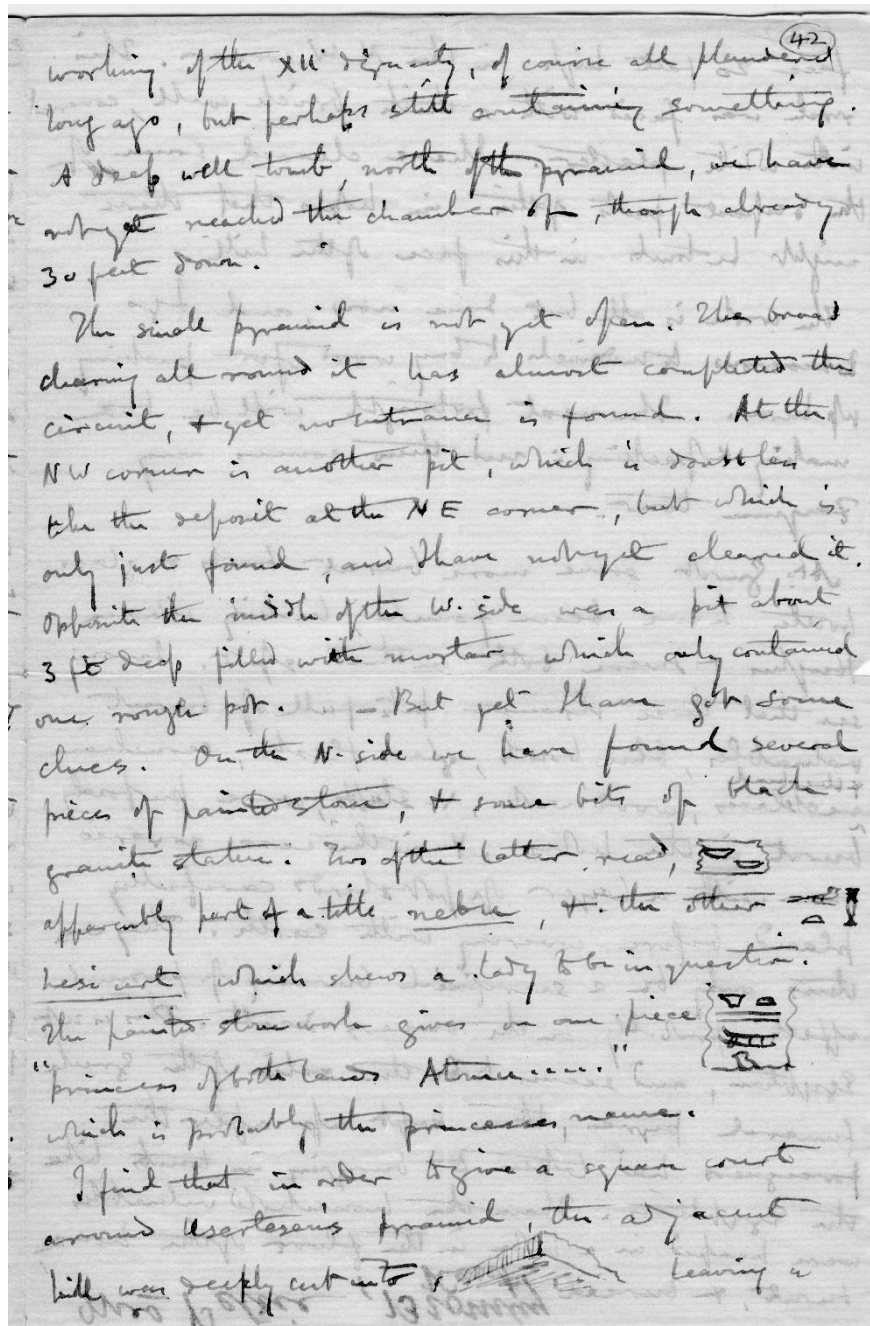 42
working of the XII dynasty, of course all plundered
long ago, but perhaps still containing something.
A deep well tomb, north of the pyramid, we have
not yet reached the chamber of, though already
30 feet down.
The small pyramid is not yet open. The broad
clearing all round it has almost completed the
circuit, & yet no entrance is found. At the
NW corner is another pit, which is doubtless
like the deposit at the NE corner, but which is
only just found, and I have not yet cleared it.
Opposite the middle of the W. side was a pit about
3 ft deep filled with mortar which only contained
one rough pot. – But yet I have got some
clues. On the N. side we have found several
pieces of painted stone, & some bits of black
granite statue. Two of the latter read,
apparently part of a title nebu, & the other
hesi urt which shews a lady to be in question.
The painted stonework gives on one piece
"princess of both lands Atmu....."
which is probably the princesses, name.
I find that in order to give a square court
around Usertesen's pyramid, the adjacent
hill was deeply cut into, leaving a